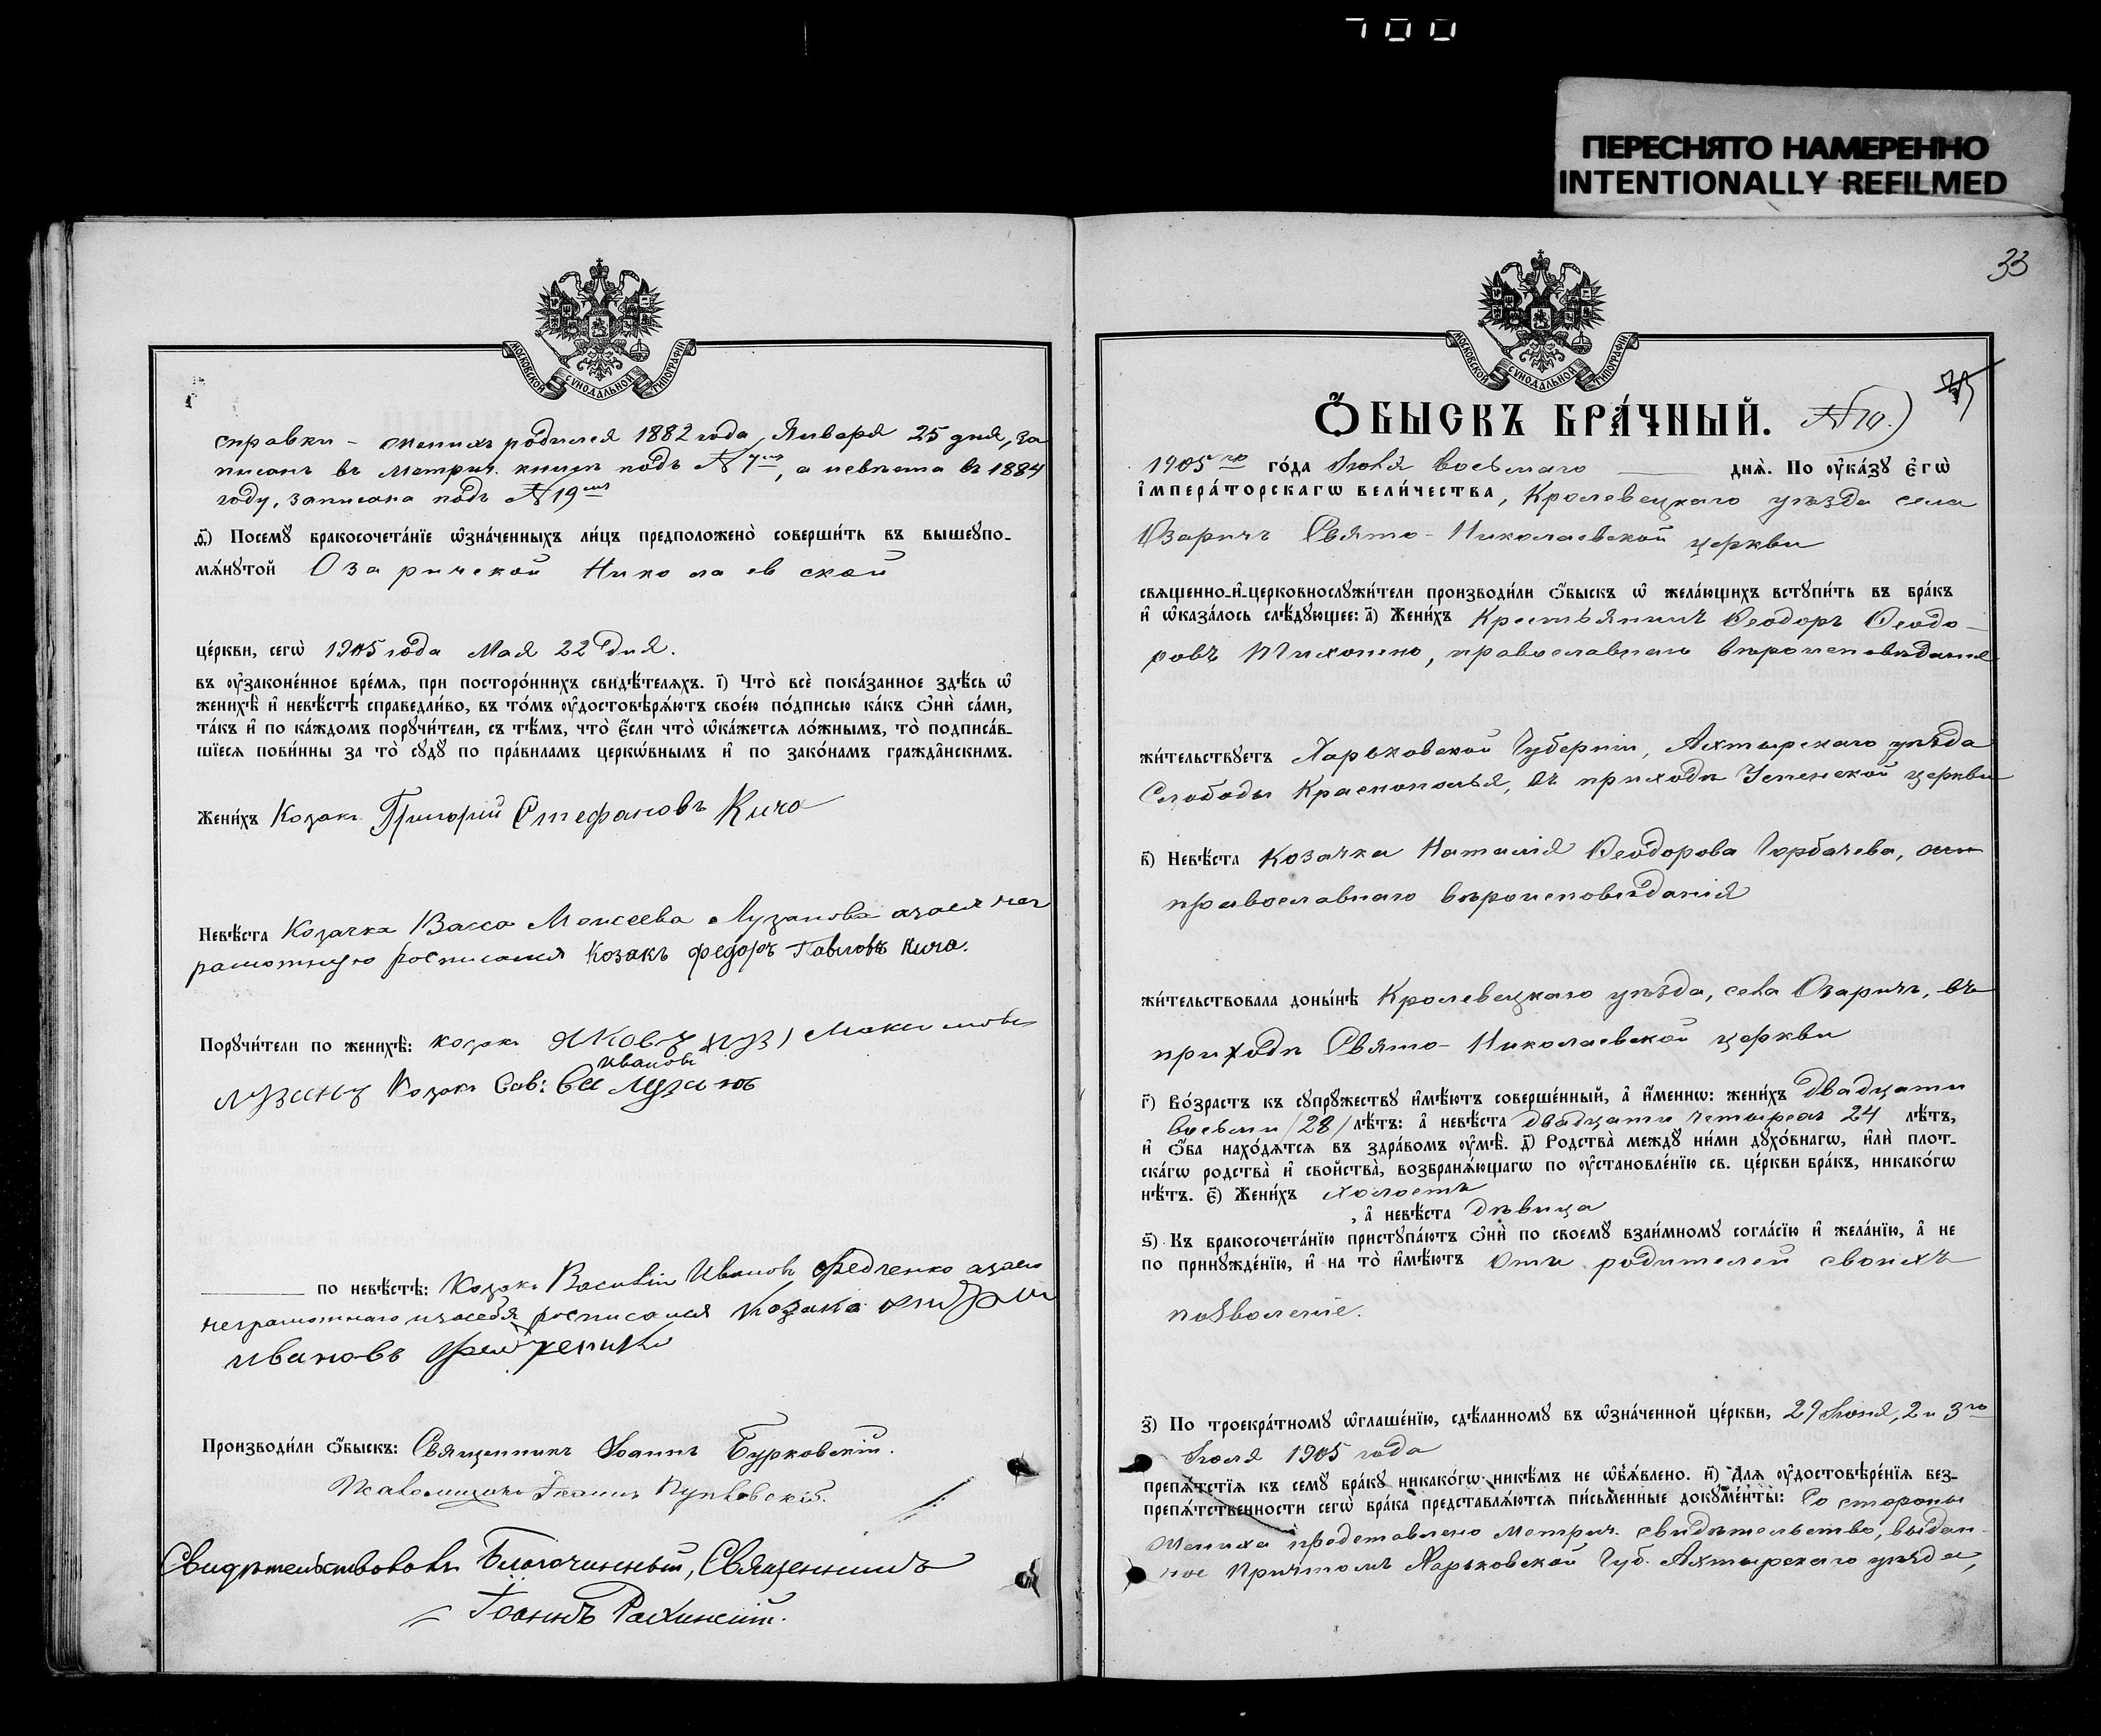 700
ПЕРЕСНЯТО НАМЕРЕННО
INTENTIONALLY REFILMED
МОСКОВСКОЙ СѴНОДАЛЬНОЙ ТИПОГРАФІИ
справки – женихъ родился 1882 года, Января 25 дня, за
писанъ въ метрич. книгѣ подъ № 7мъ, а невѣста въ 1884
году, записана подъ № 19мъ
д҃і) Посемꙋ бракосочета́нїе ѡ҆зна́ченныхъ ли́цъ предположено̀ соверши́ть въ вышеꙋпо-
мѧ́нꙋтой Озаричской Николаевской
це́ркви, сегѡ̀ 1905 года Мая 22 дня.
въ ᲂу҆законе́нное вре́мѧ, при посторо́ннихъ свидѣ́телѧхъ. і҃) Что̀ всѐ пока́занное здѣ́сь ѡ҆
женихѣ̀ и҆ невѣ́стѣ справедли́во, въ то́мъ ᲂу҆достовѣрѧ́ютъ свое́ю по́дписью ка́къ ѻ҆нѝ са́ми,
та́къ и҆ по ка́ждомъ порꙋчи́тели, съ тѣ́мъ, что̀ є҆́сли что̀ ѡ҆ка́жетсѧ ло́жнымъ, то̀ подписа́в-
шїесѧ пови́нны за то̀ сꙋдꙋ̀ по пра́виламъ церкѡ́внымъ и҆ по зако́намъ гражда̑нскимъ.
Жени́хъ Козакъ Григорій Стефановъ Кича
Невѣ́ста Козачка Васса Моисеева Лузанова а за ея нег
рамотную росписался Козакъ Федоръ Павловъ Кича.
Порꙋчи́тели по женихѣ̀: козакъ Яковъ Максимовъ
Ивановъ
лузанъ Козакъ Сав: Са Лузанов
по невѣ́стѣ: Козакъ Василій Ивановъ Федченко а за его
неграмотнаго и за себя росписался Козакъ Андрей
Ивановъ Федченко
Производи́ли ѻ҆́быскъ: Священникъ Іоаннъ Бурковскій.
Псаломщикъ Іоаннъ
Свидѣтельствовалъ Благочинный, Священникъ
Іоаннъ
33
МОСКОВСКОЙ СѴНОДАЛЬНОЙ ТИПОГРАФІИ
Ѻ҆́БЫСКЪ БРА́ЧНЫЙ. № 10.)
1905го го́да Іюля восьмаго днѧ̀. По ᲂу҆ка́зꙋ є҆гѡ̀
і҆мпера́торскагѡ вели́чества, Кролевецкаго уѣзда села
Озаричъ Свято-Николаевской церкви
свѧщенно-и҆-церковнослꙋжи́тели производи́ли ѻ҆́быскъ ѡ҆ жела́ющихъ встꙋпи́ть въ бра́къ
и҆ ѡ҆каза́лось слѣ́дꙋющее: а҃) Жени́хъ Крестьянинъ Ѳеодоръ Ѳеодо-
ровъ Тихоненко, православнаго вѣроисповѣданія
жи́тельствꙋетъ Харьковской Губерніи, Ахтырскаго уѣзда
Слободы Краснополья, въ приходѣ Успенской церкви
в҃) Невѣ́ста Козачка Наталія Ѳеодорова Горбачева,
православнаго вѣроисповѣданія
жи́тельствовала донынѣ Кролевецкаго уѣзда, села Озаричъ, въ
приходѣ Свято-Николаевской церкви
г҃) Во́зрастъ къ сꙋпрꙋжествꙋ и҆мѣ́ютъ соверше́нный, а҆ и҆́меннѡ: жени́хъ двадцати
восьми /28/ лѣ́тъ: а҆ невѣ́ста двадцати четырехъ 24 лѣ́тъ,
и҆ ѻ҆́ба нахо́дѧтсѧ въ здра́вомъ ᲂу҆мѣ̀. д҃) Родства̀ междꙋ̀ ни́ми дꙋхо́внагѡ, и҆лѝ плот-
ска́гѡ родства̀ и҆ свойства̀, возбранѧ́ющагѡ по ᲂу҆становле́нїю св. це́ркви бра́къ, никако́гѡ
нѣ́тъ. є҃) Жени́хъ холостъ
, а҆ невѣ́ста дѣвица
ѕ҃) Къ бракосочета́нїю пристꙋпа́ютъ ѻ҆нѝ по своемꙋ̀ взаи́мномꙋ согла́сїю и҆ жела́нїю, а҆ не
по принꙋжде́нїю, и҆ на то̀ и҆мѣ́ютъ отъ родителей своихъ
позволеніе.
з҃) По троекра́тномꙋ ѡ҆глаше́нїю, сдѣ́ланномꙋ въ ѡ҆зна́ченной це́ркви, 29 Іюня, 2 и 3го
Іюля 1905 года
препѧ́тствїѧ къ семꙋ̀ бра́кꙋ никако́гѡ никѣ́мъ не ѡ҆б̾ѧ́влено. и҃) Длѧ̀ ᲂу҆достовѣре́нїѧ без-
препѧ́тственности сегѡ̀ бра́ка представлѧ́ютсѧ пи́сьменные докꙋме́нты: Со стороны
Жениха представлено метрич. свидѣтельство, выдан-
ное Причтомъ Харьковской Губ. Ахтырскаго уѣзда,